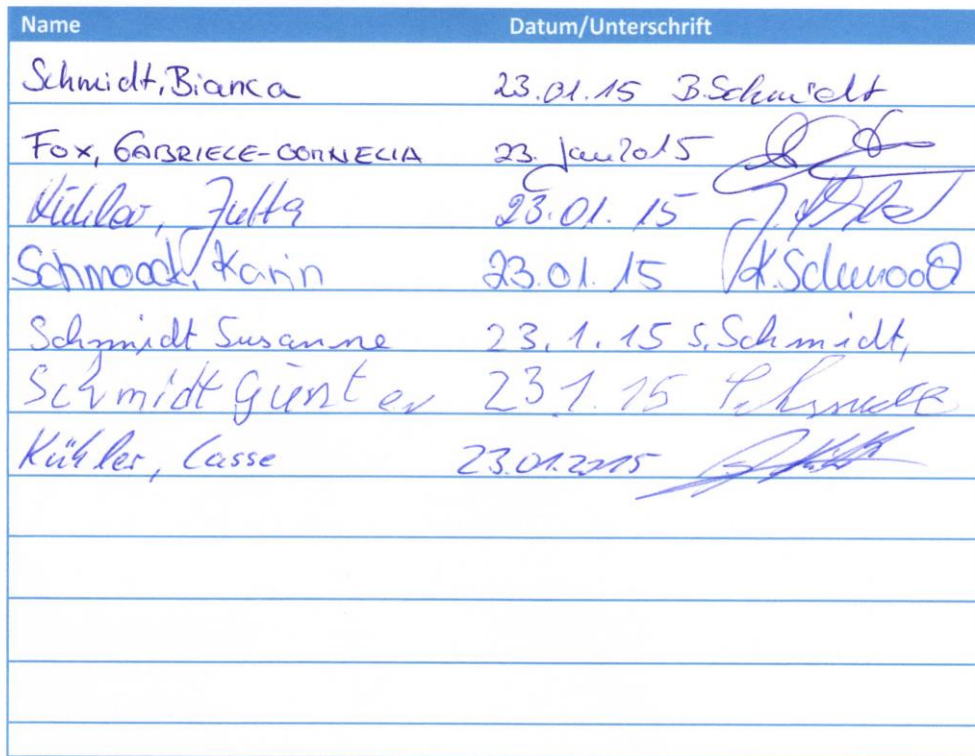 Name Datum/Unterschrift
Schmidt, Bianca 23.01.15 B.Schmidt
FOX, GABRIELE-CORNELIA 23. Jan 2015
Kühler, Jutta 23.01.15
Schmoock, Karin 23.01.15 K.Schmoock
Schmidt Susanne 23.1.15 S.Schmidt,
Schmidt Günter 23 1.15 Schmidt
Kühler, Lasse 23.01.2015